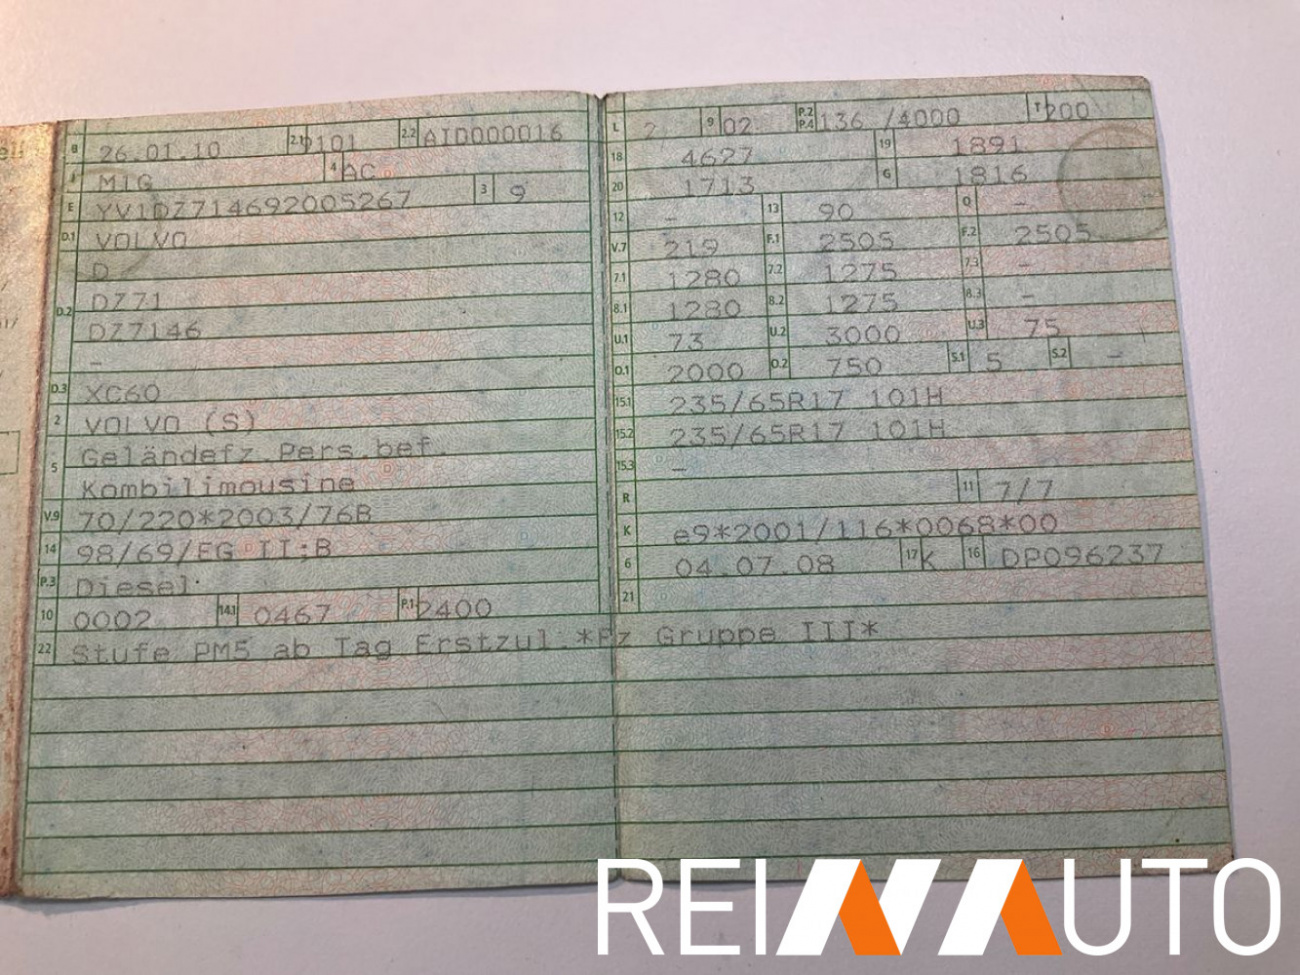 B 26.01.10 2.1 9101 2.2 AID000016
J M1G 4 AC
E YV1DZ714692005267 3 9
D.1 VOLVO
D
D.2 DZ71
DZ7146
-
D.3 XC60
2 VOLVO (S)
5 Geländefz.Pers.bef.
Kombilimousine
V.9 70/220*2003/76B
14 98/69/EG II;B
P.3 Diesel
10 0002 14.1 0467 P.1 2400
22 Stufe PM5 ab Tag Erstzul.*Fz Gruppe III*
L 2 9 02 P.2 P.4 136 /4000 T 200
18 4627 19 1891
20 1713 G 1816
12 - 13 90 Q -
V.7 219 F.1 2505 F.2 2505
7.1 1280 7.2 1275 7.3 -
8.1 1280 8.2 1275 8.3 -
U.1 73 U.2 3000 U.3 75
O.1 2000 O.2 750 S.1 5 S.2 -
15.1 235/65R17 101H
15.2 235/65R17 101H
15.3 -
R 11 7/7
K e9*2001/116*0068*00
6 04.07.08 17 K 16 DP096237
21
REINAUTO